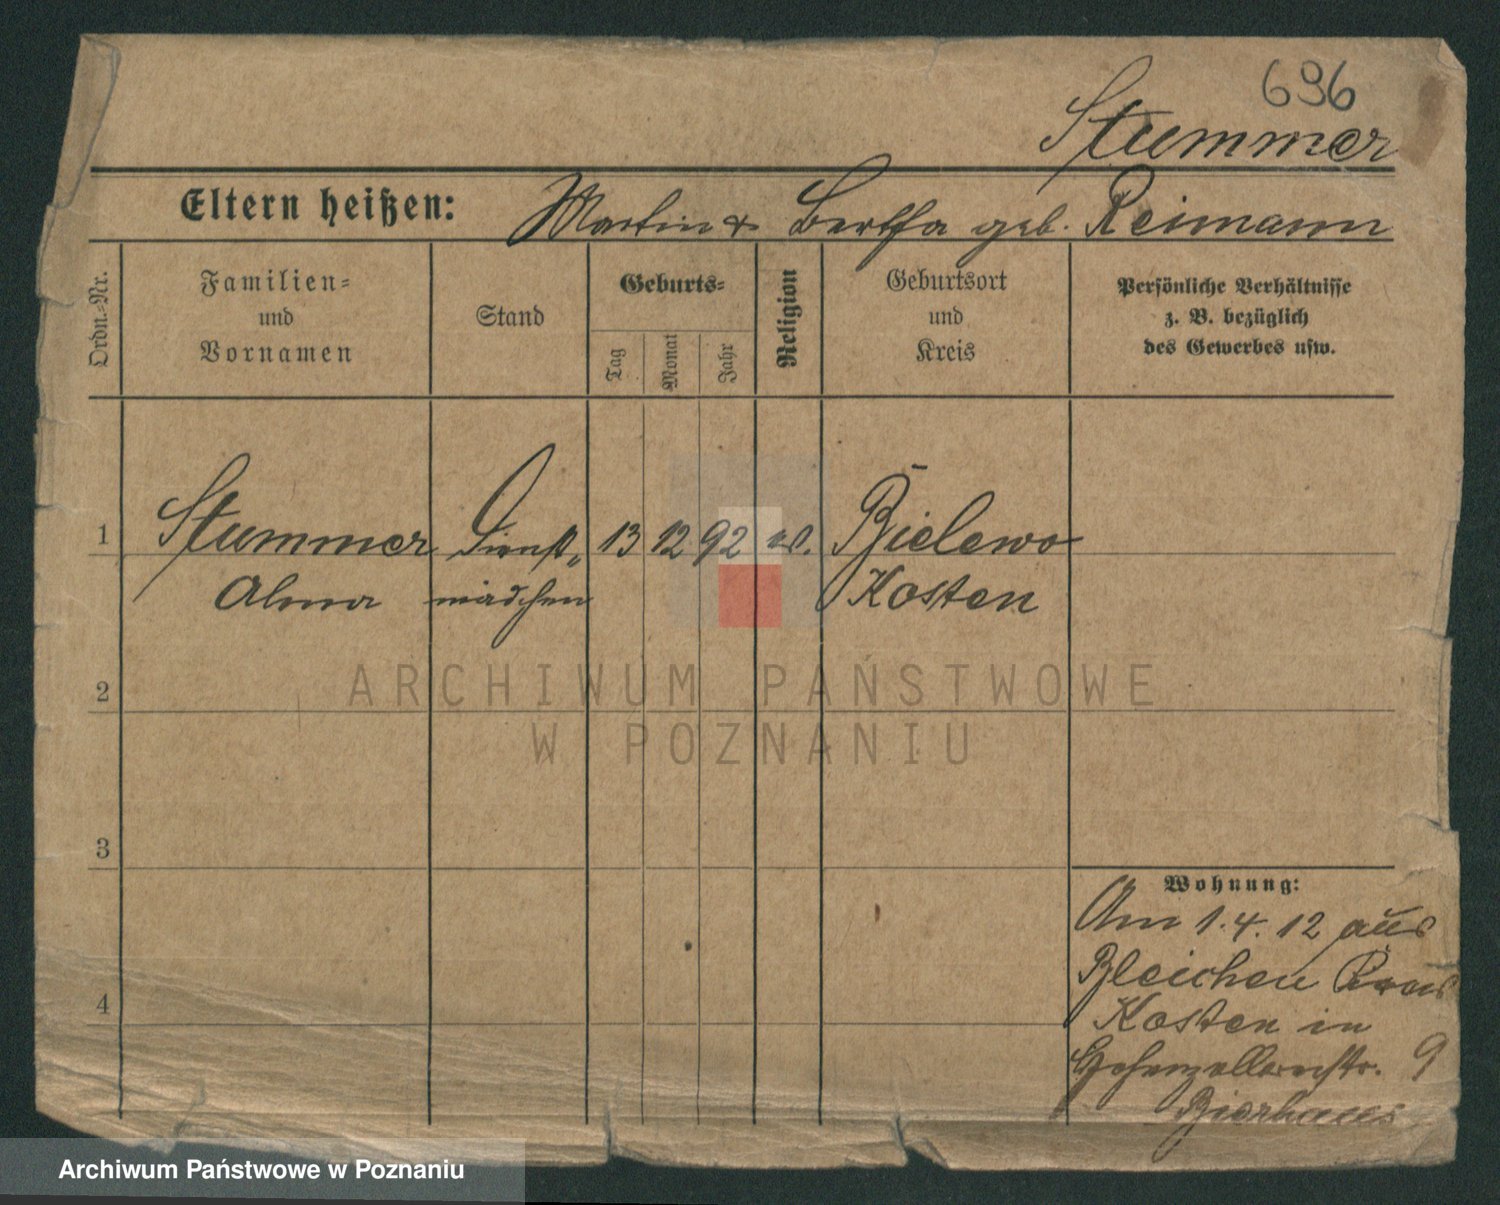 696
Stummer
Eltern heißen: Martin & Bertha geb. Reimann
Ordn.-Nr.
Familien- und Vornamen
Stand
Geburts-
Tag
Monat
Jahr
Religion
Geburtsort und Kreis
Persönliche Verhältnisse
z. B. bezüglich
des Gewerbes usw.
1 Stummer Dienst- 13 12 92 ev. Bielewo
Alma mädchen Kosten
2
3
4
Wohnung:
Am 1.4.12 aus
Bleichen Kreis
Kosten in
Hohenzollernstr. 9
Bierhaus
ARCHIWUM PAŃSTWOWE
W POZNANIU
Archiwum Państwowe w Poznaniu